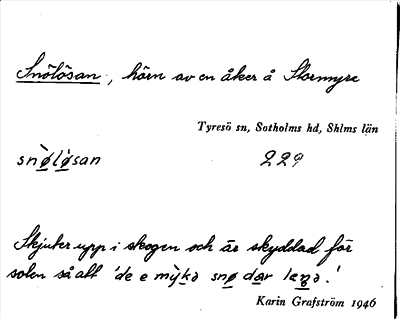 Snölösan, hörn av en åker å Stormyre
Tyresö sn, Sotholms hd, Shlms län
snø̀lø̀san 229
Skjuter upp i skogen och är skyddad för
solen så att 'de e mỳkə snø dar leŋə.'
Karin Grafström 1946